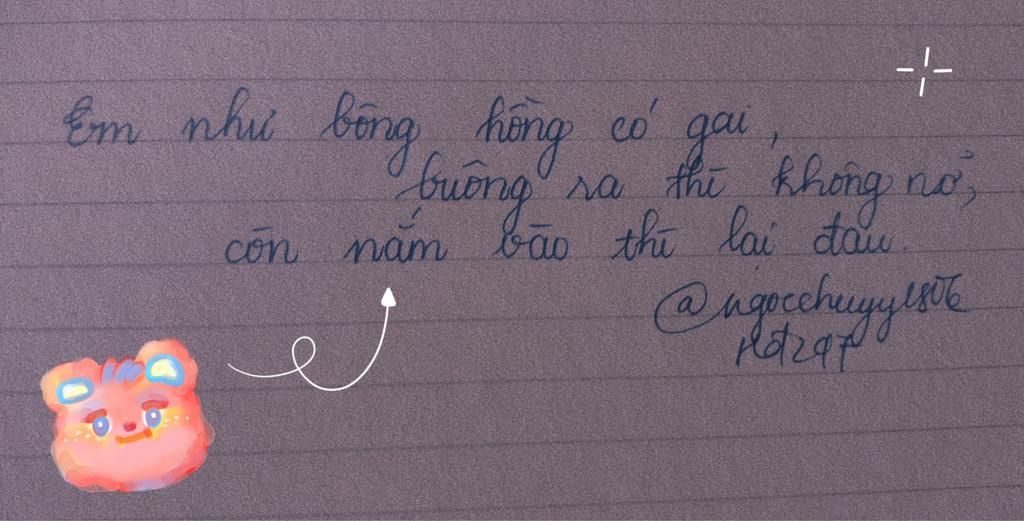 Em như bông hồng có gai,
buông ra thì không nở,
còn nắm vào thì lại đau.
@ngocchuyy1806
Hot247